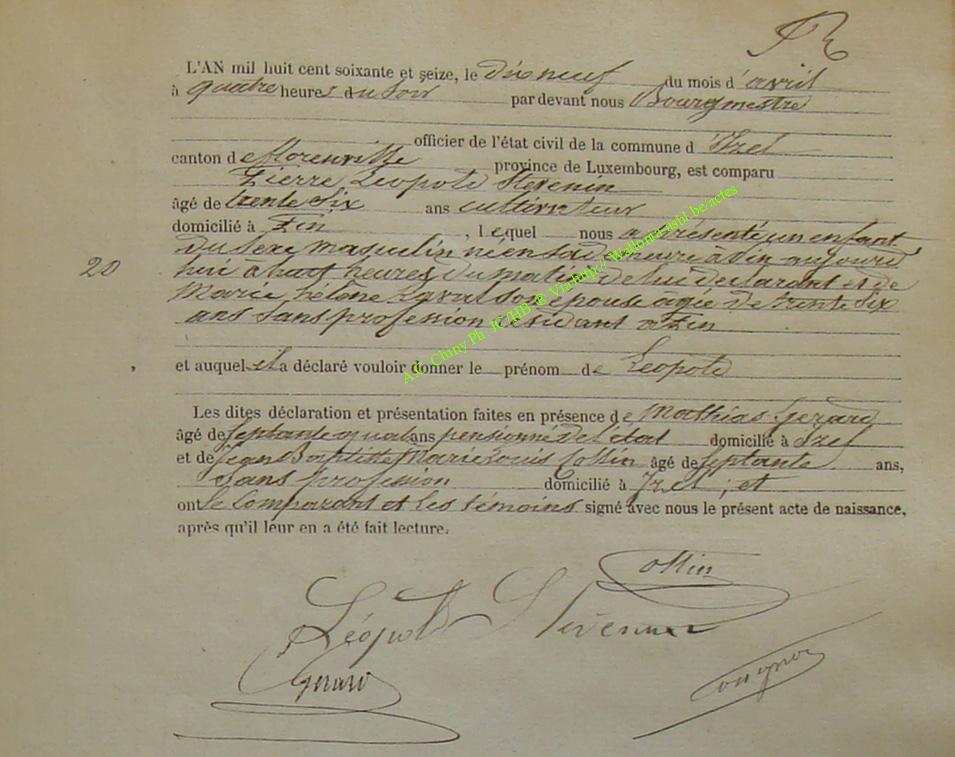 L'AN mil huit cent soixante et seize, le dix neuf du mois d'avril
à quatre heures du Soir par devant nous Bourgmestre
officier de l'état civil de la commune d'Izel
canton de florenville province de Luxembourg, est comparu
Pierre Léopold Stevenin
âgé de trente Six ans cultivateur
domicilié à Pin , lequel nous a présenté un enfant
du sexe masculin né en sa demeure à Pin aujourd
20
hui à huit heures du matin de lui déclarant et de
Marie hélène son épouse agée de trente Six
ans sans profession résidant à Pin
et auquel il a déclaré vouloir donner le prénom de Léopold
Les dites déclaration et présentation faites en présence de Mathias Gerard
âgé de Septante quatre ans pensionné de l'état domicilié à Izel
et de Jean Baptiste Marie Louis Collin âgé de Septante ans,
Sans profession domicilié à Izel ; et
ont le Comparant et les témoins signé avec nous le présent acte de naissance,
après qu'il leur en a été fait lecture.
Collin
Léopold Stevenin
Gerard